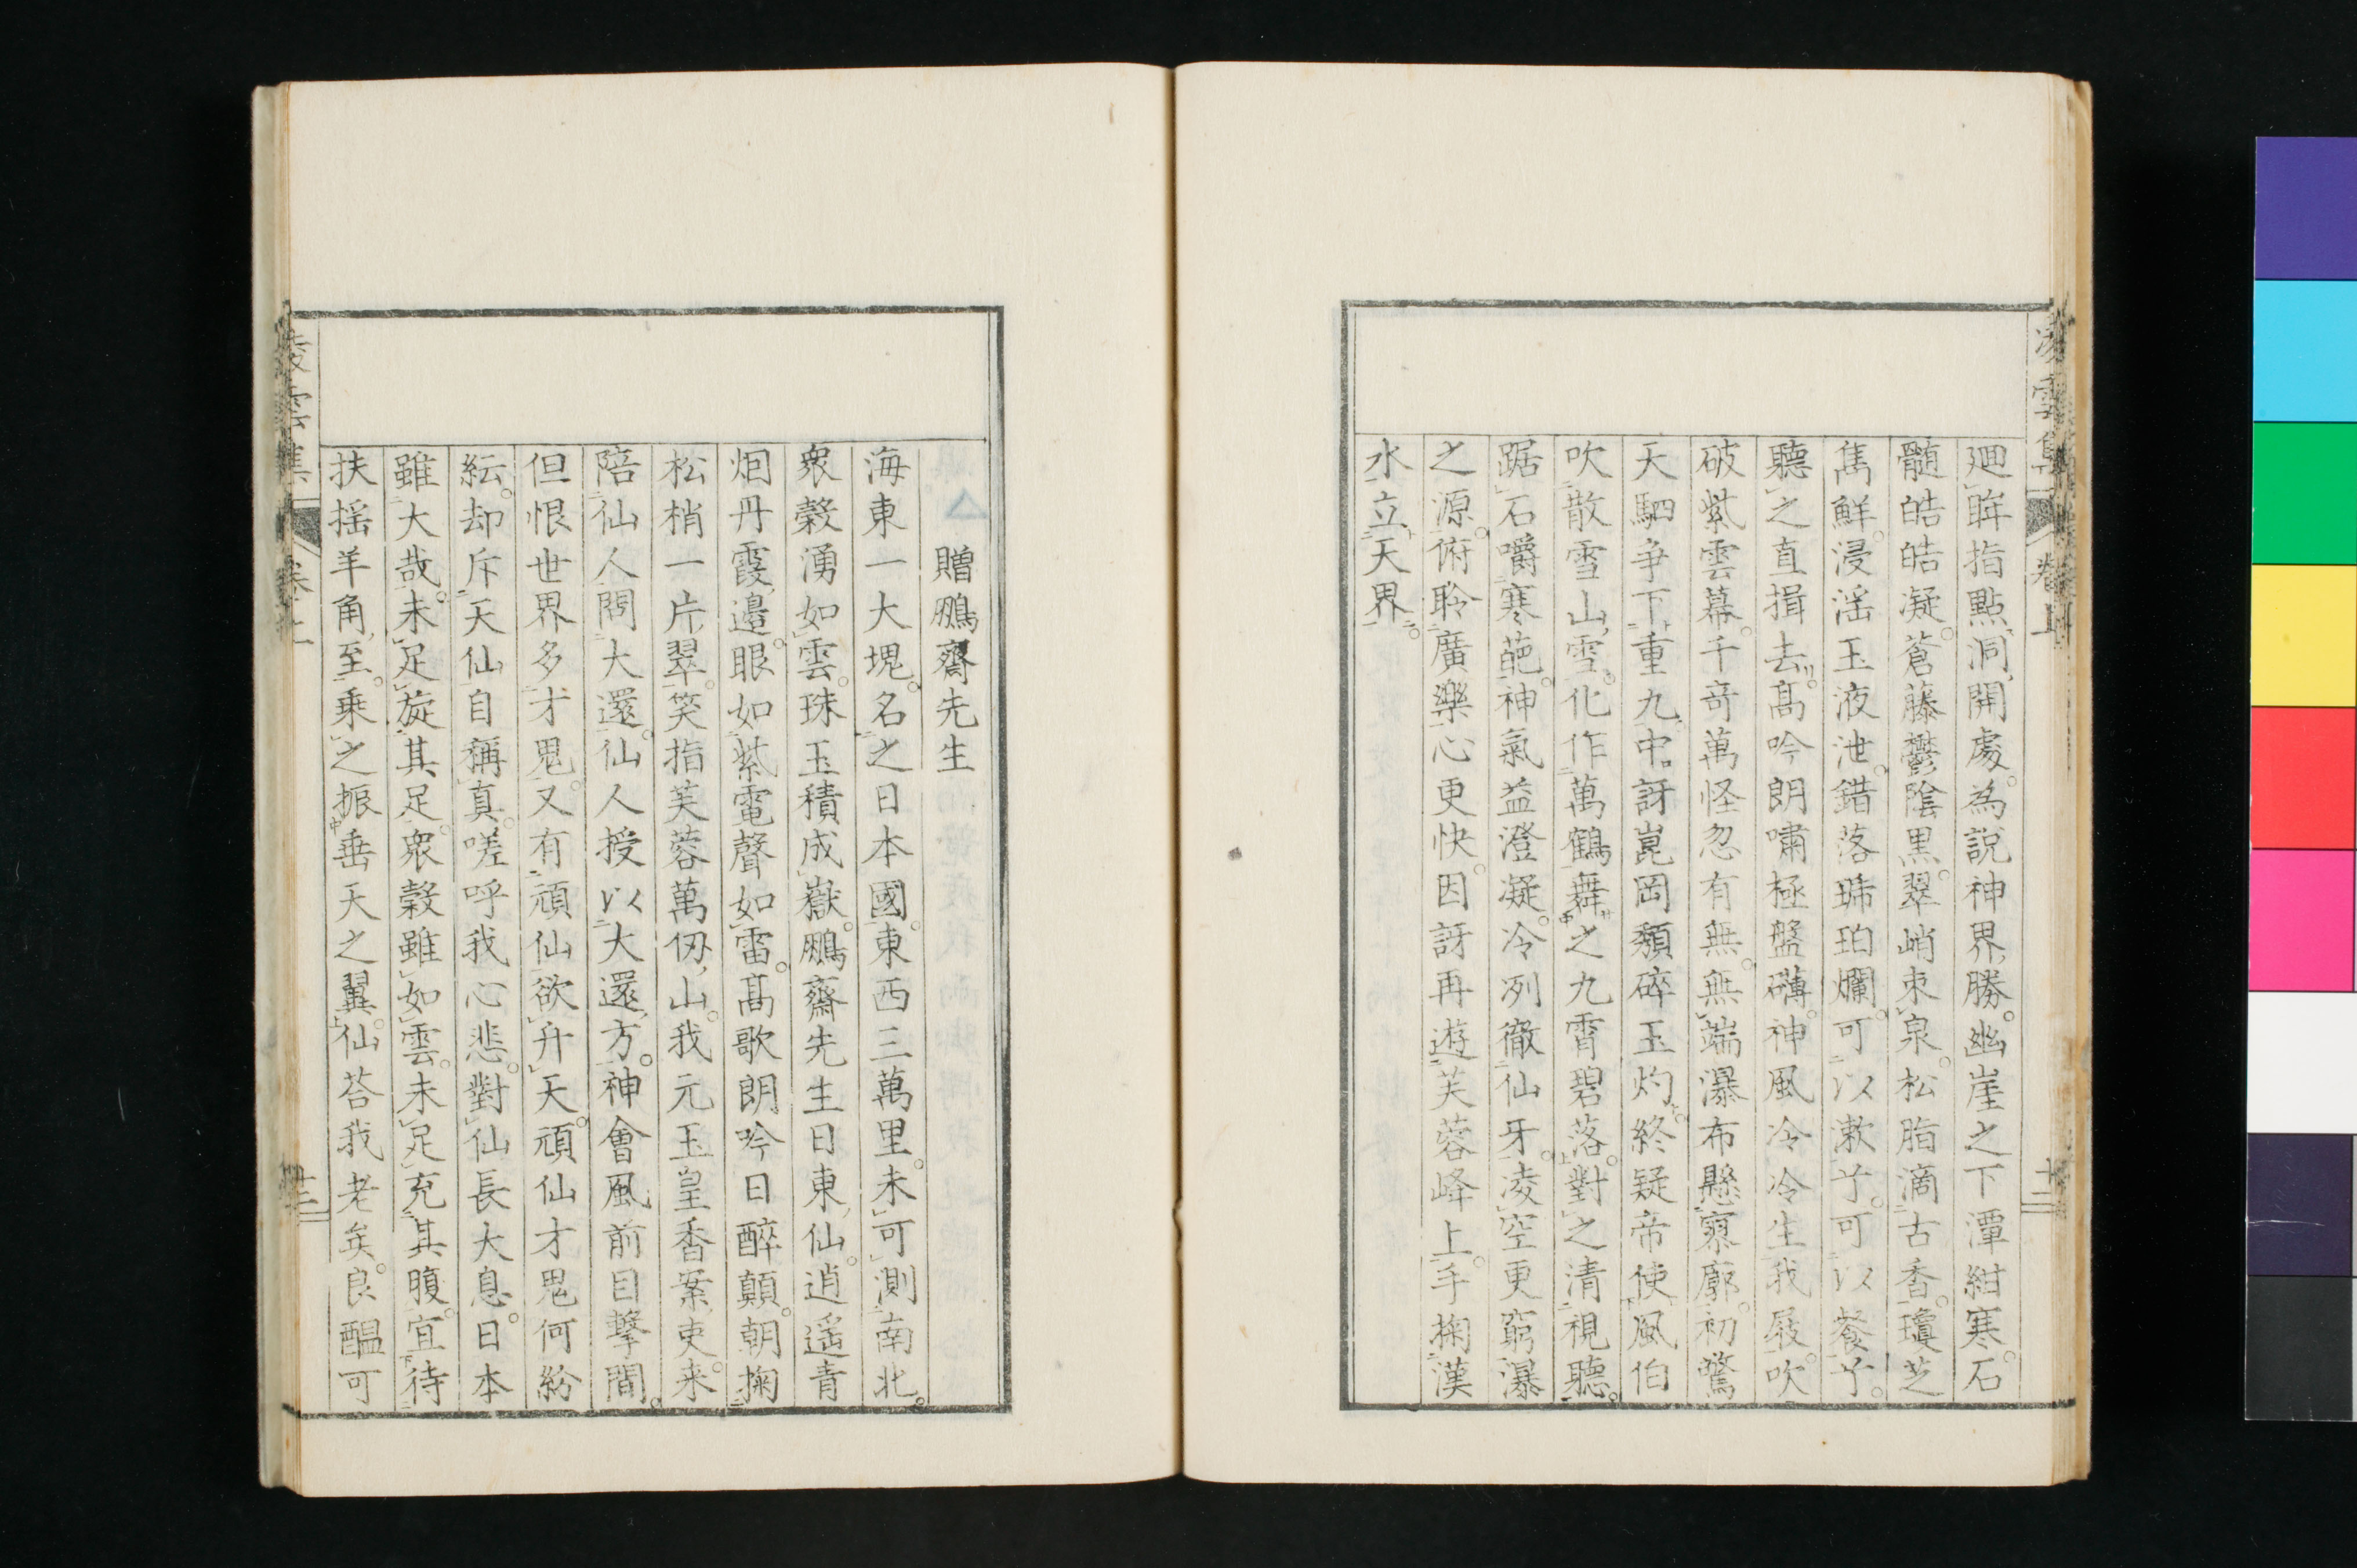 凌雲集
卷上
十二
廽眸指點洞開處。為說神界勝。幽崖之下潭紺寒。石
髓皓皓凝。蒼藤鬱陰黒。翠峭束泉。松脂滴古香。瓊芝
雋鮮。浸淫玉液泄。錯落琋珀爛。可以漱兮。可以餐兮。
聽之直揖去。髙吟朗嘯極盤礴。神風冷冷生我屐。吹
破紫雲幕。千奇萬怪忽有無。無端瀑布懸寥廓。初驚
天駟爭下重九中。訝崑岡頽碎玉灼。終疑帝使風伯
吹散雪山雪。化作萬鶴舞之九霄碧落。對之清視聽。
踞石嚼寒葩。神氣益澄凝。冷冽徹仙牙。凌空更窮瀑
之源。俯聆廣樂心更快。因訝再遊芙蓉峰上。手掬漢
水立天界。
贈鵬齋先生
海東一大塊。名之日本國。東西三萬里。未可測南北。
衆穀湧如雲。珠玉積成嶽。鵬齋先生日東仙。逍遥青
烟丹霞邉。眼如紫電聲如雷。髙歌朗吟日醉顛。朝掬
松梢一片翠。笑指芙蓉萬仭山。我元玉皇香案吏。来
陪仙人問大還。仙人授以大還方。神會風前目擊間。
但恨世界多才鬼。又有頑仙欲升天。頑仙才鬼何紛
紜。却斥天仙自稱真。嗟呼我心悲。對仙長大息。日本
雖大哉。未足旋其足。衆穀雖如雲。未足充其腹。宜待
扶揺羊角至。乗之振垂天之翼。仙荅我老矣。良醞可
凌雲集
卷上
十三